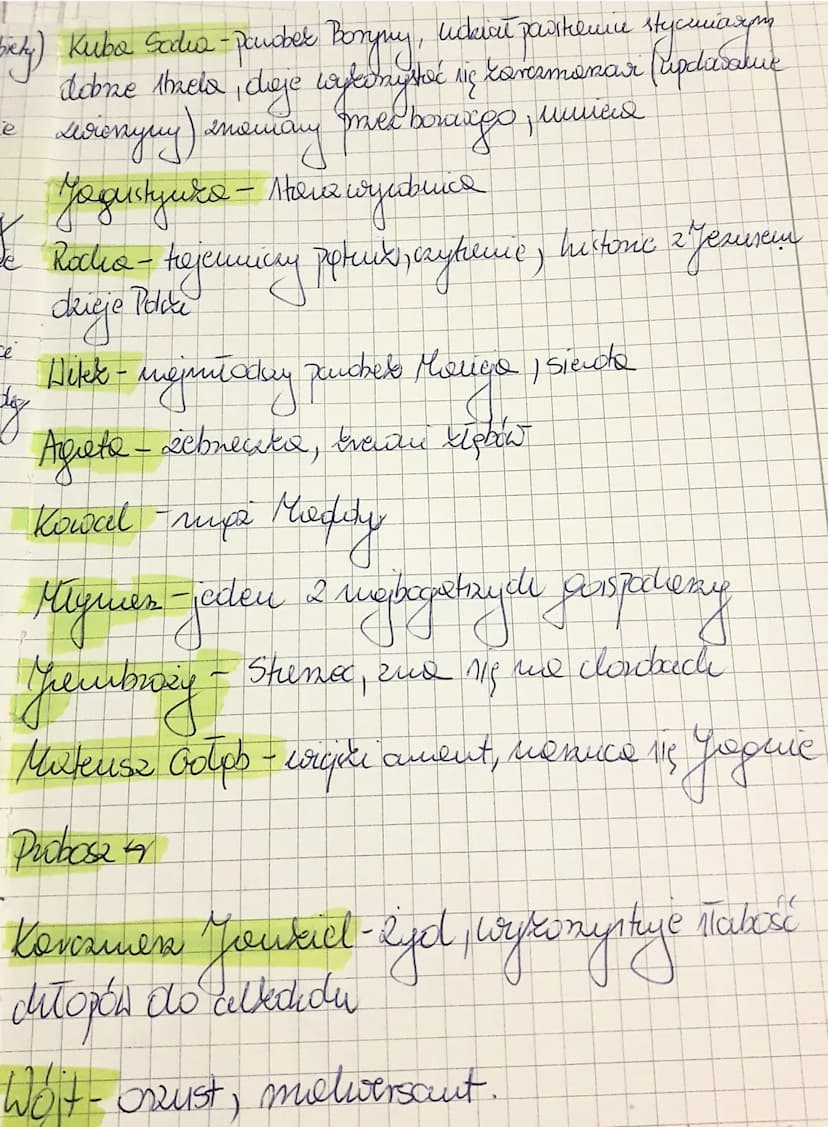 biety) Kuba Socha - parobek Boryny, udział powstaniu styczniowym
dobrze strzela, daje wykorzystać się karczmarzowi (updasanie
ie zwierzyny) przez borowego, umiera
Jagustynka - stara wyrobnica
Rocha - tajemniczy pątnik, czytanie, historie z Jezusem
dzieje Polski
Witek - najmłodszy parobek Macieja, sierota
Agata - żebraczka, krewni Kłębów
Kowal - mąż Magdy
Młynarz - jeden z najbogatszych gospodarzy
Jambroży - Starzec, zna się na chorobach
Mateusz Gołąb - wiejski amant, narzuca się Jagnie
Proboszcz
Karczmarz Jankiel - Żyd, wykorzystuje słabość
chłopów do alkoholu
Wójt - oszust, malwersant.